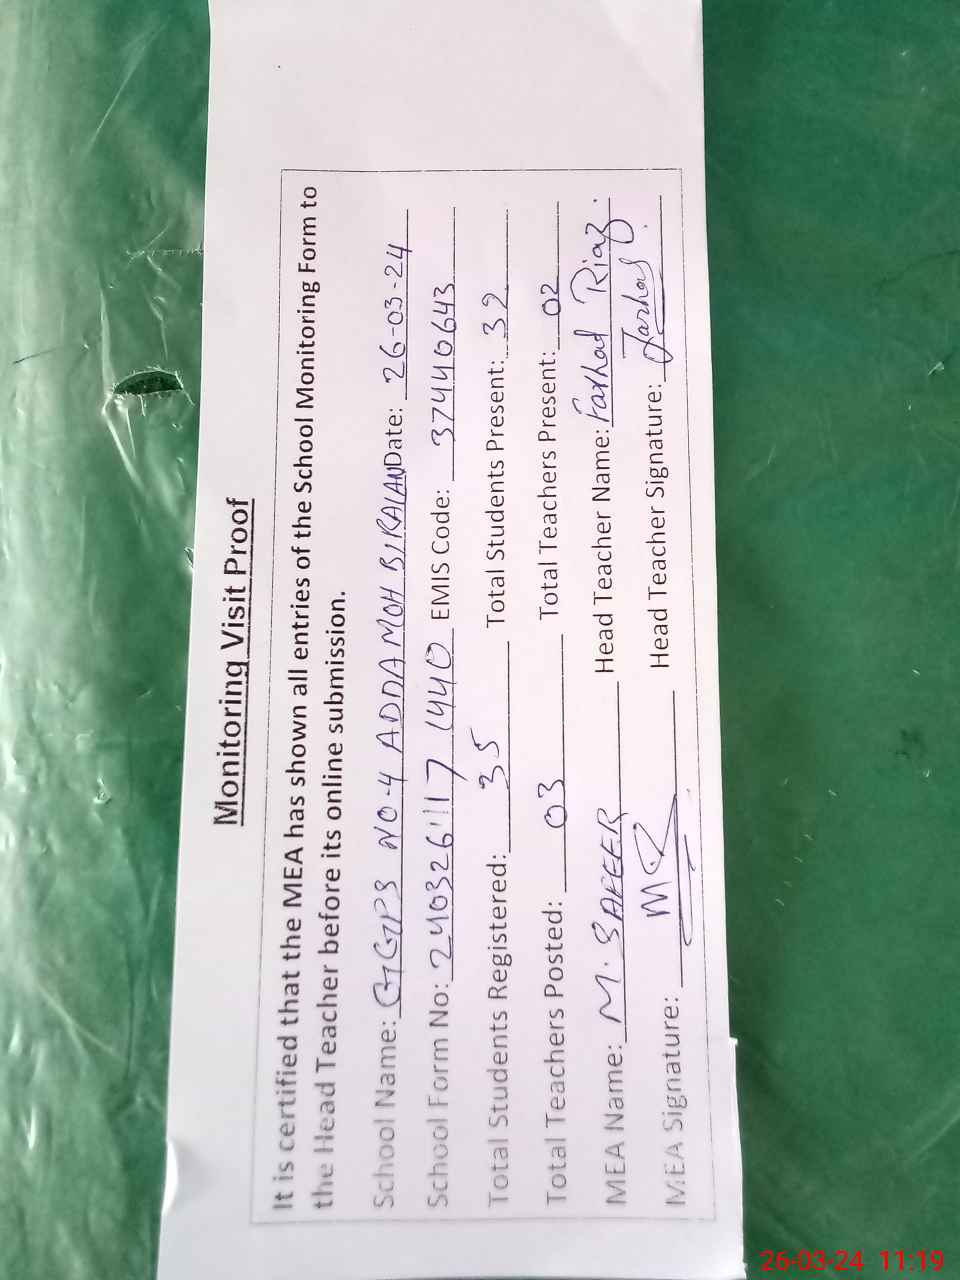 Monitoring Visit Proof
It is certified that the MEA has shown all entries of the School Monitoring Form to
the Head Teacher before its online submission.
School Name: GGPS NO-4 ADDA MOH BIRALAN Date: 26-03-24
School Form No: 2403261117 1440 EMIS Code: 37440643
Total Students Registered: 35 Total Students Present: 32
Total Teachers Posted: 03 Total Teachers Present: 02
MEA Name: M. SAFEER Head Teacher Name: Farhad Riaz.
MEA Signature: Head Teacher Signature: Farhad
26-03-24 11:19